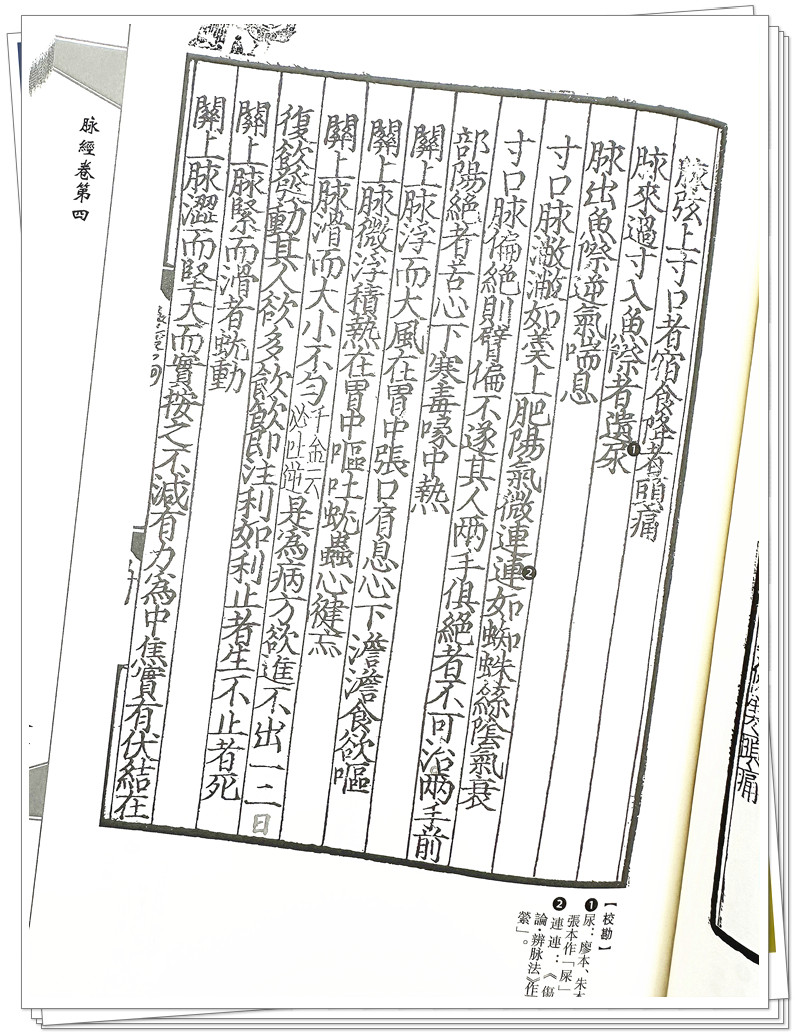 脉弦上寸口者宿食降者頭痛
脉來過寸入魚際者遺尿❶
脉出魚際逆氣喘息
寸口脉潎潎如羹上肥陽氣微連連❷如蜘蛛絲陰氣衰
寸口脉偏絕則臂偏不遂其人兩手俱絕者不可治兩手前
部陽絕者苦心下寒毒喙中熱
關上脉浮而大風在胃中張口肩息心下澹澹食欲嘔
關上脉微浮積熱在胃中嘔吐蚘蟲心健忘
關上脉滑而大小不勻千金云必吐逆是為病方欲進不出一二日
復欲發動其人欲多飲飲即注利如利止者生不止者死
關上脉緊而滑者蚘動
關上脉澀而堅大而實按之不減有力為中焦實有伏結在
脉經卷第四
【校勘】
❶尿：廖本、朱本
張本作「屎」
❷連連：《傷
論·辨脉法》作
縈」。